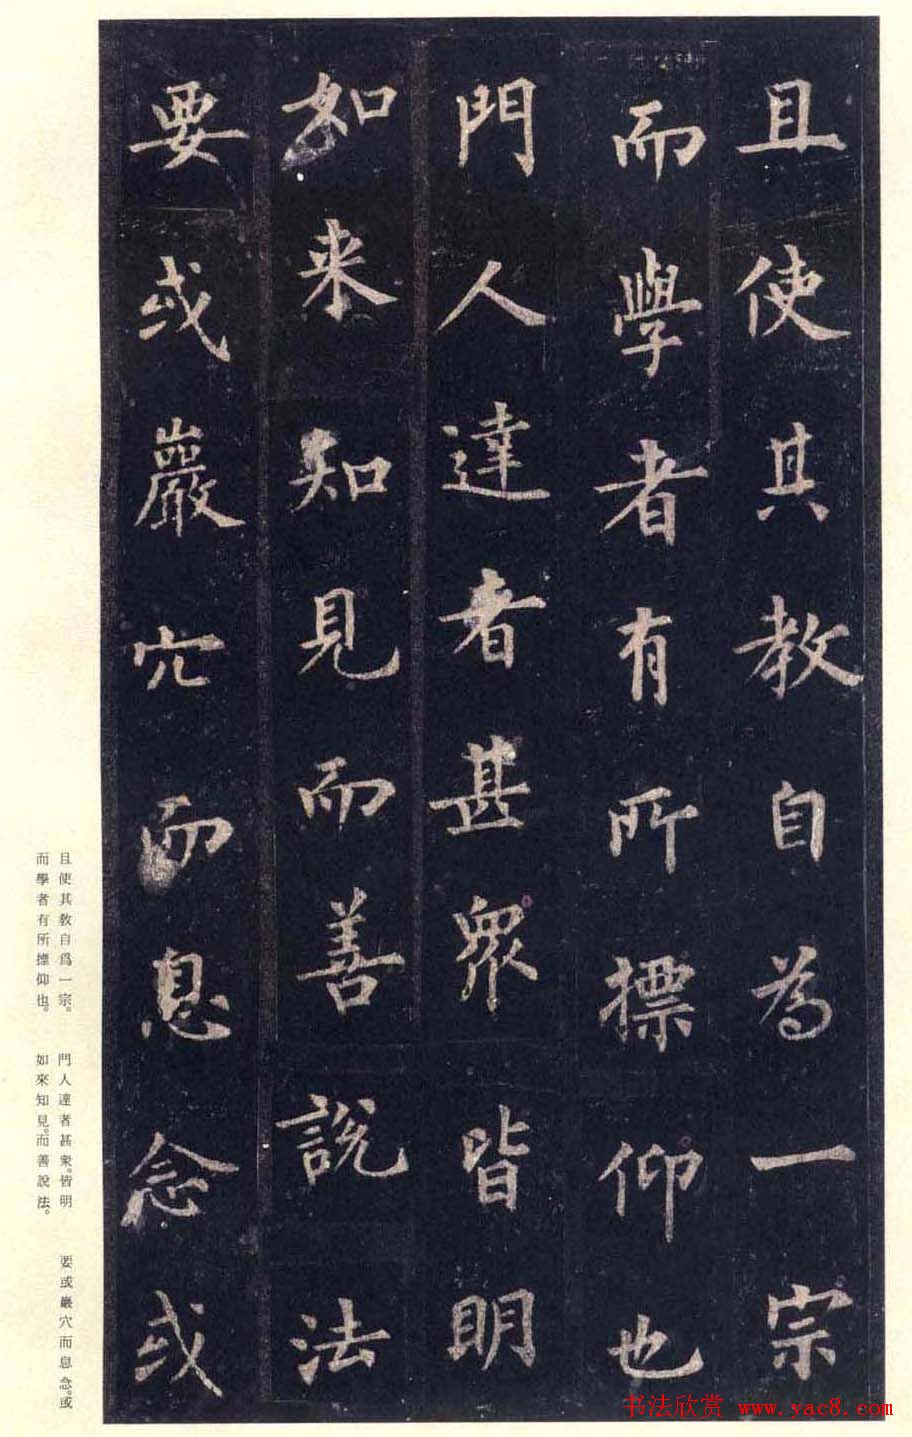 且使其教自為一宗
而學者有所摽仰也
門人達者甚衆皆明
如来知見而善說法
要或巖穴而息念或
且使其教自爲一宗。
而學者有所摽仰也。
門人達者甚衆。皆明
如來知見。而善說法。
要或巖穴而息念。或
书法欣赏 www.yac8.com